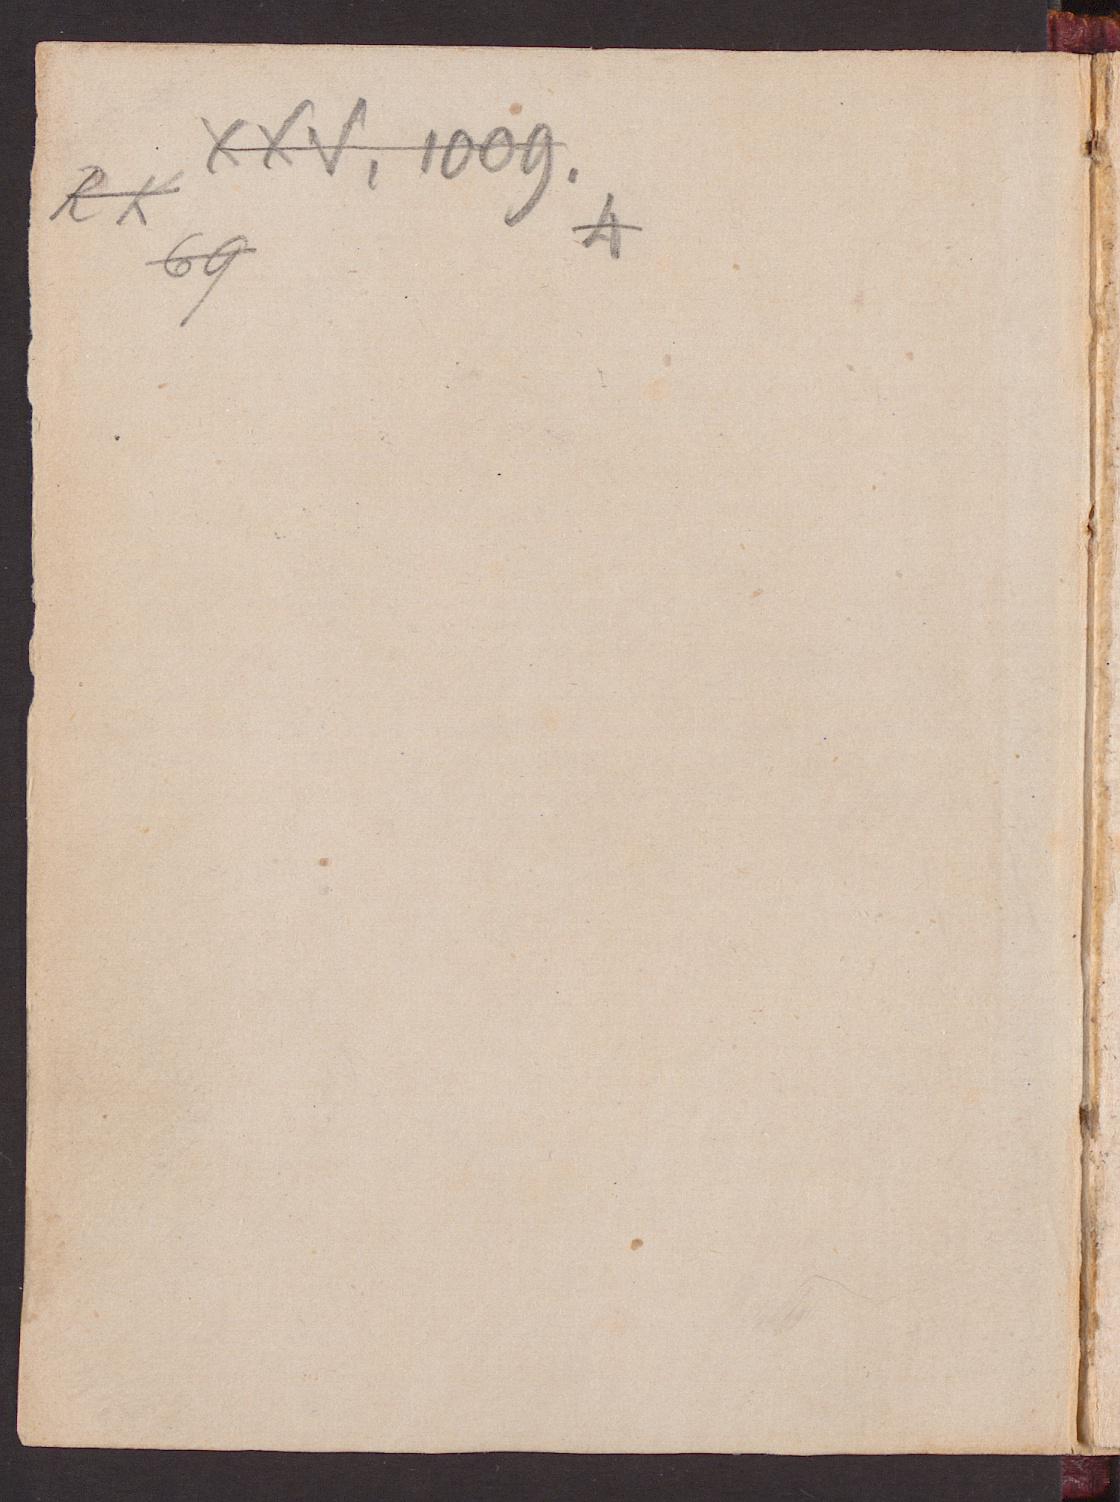 XXV, 1009.
RK
4
69